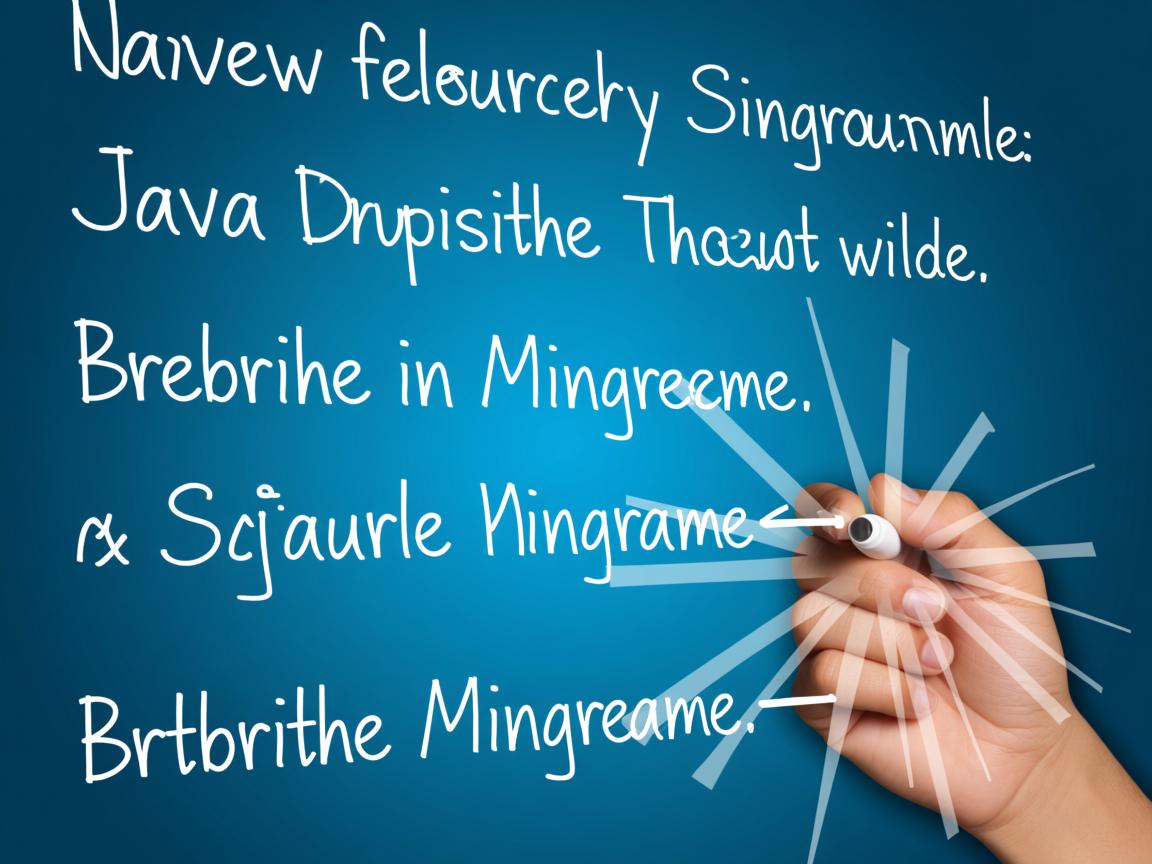 Naivew felourcehy Singrounmle:
Java Drupisithe wilde.
Brebrihe in Mingrecme.
Scjaurle Mingrame
Brtbrithe Mingreame.